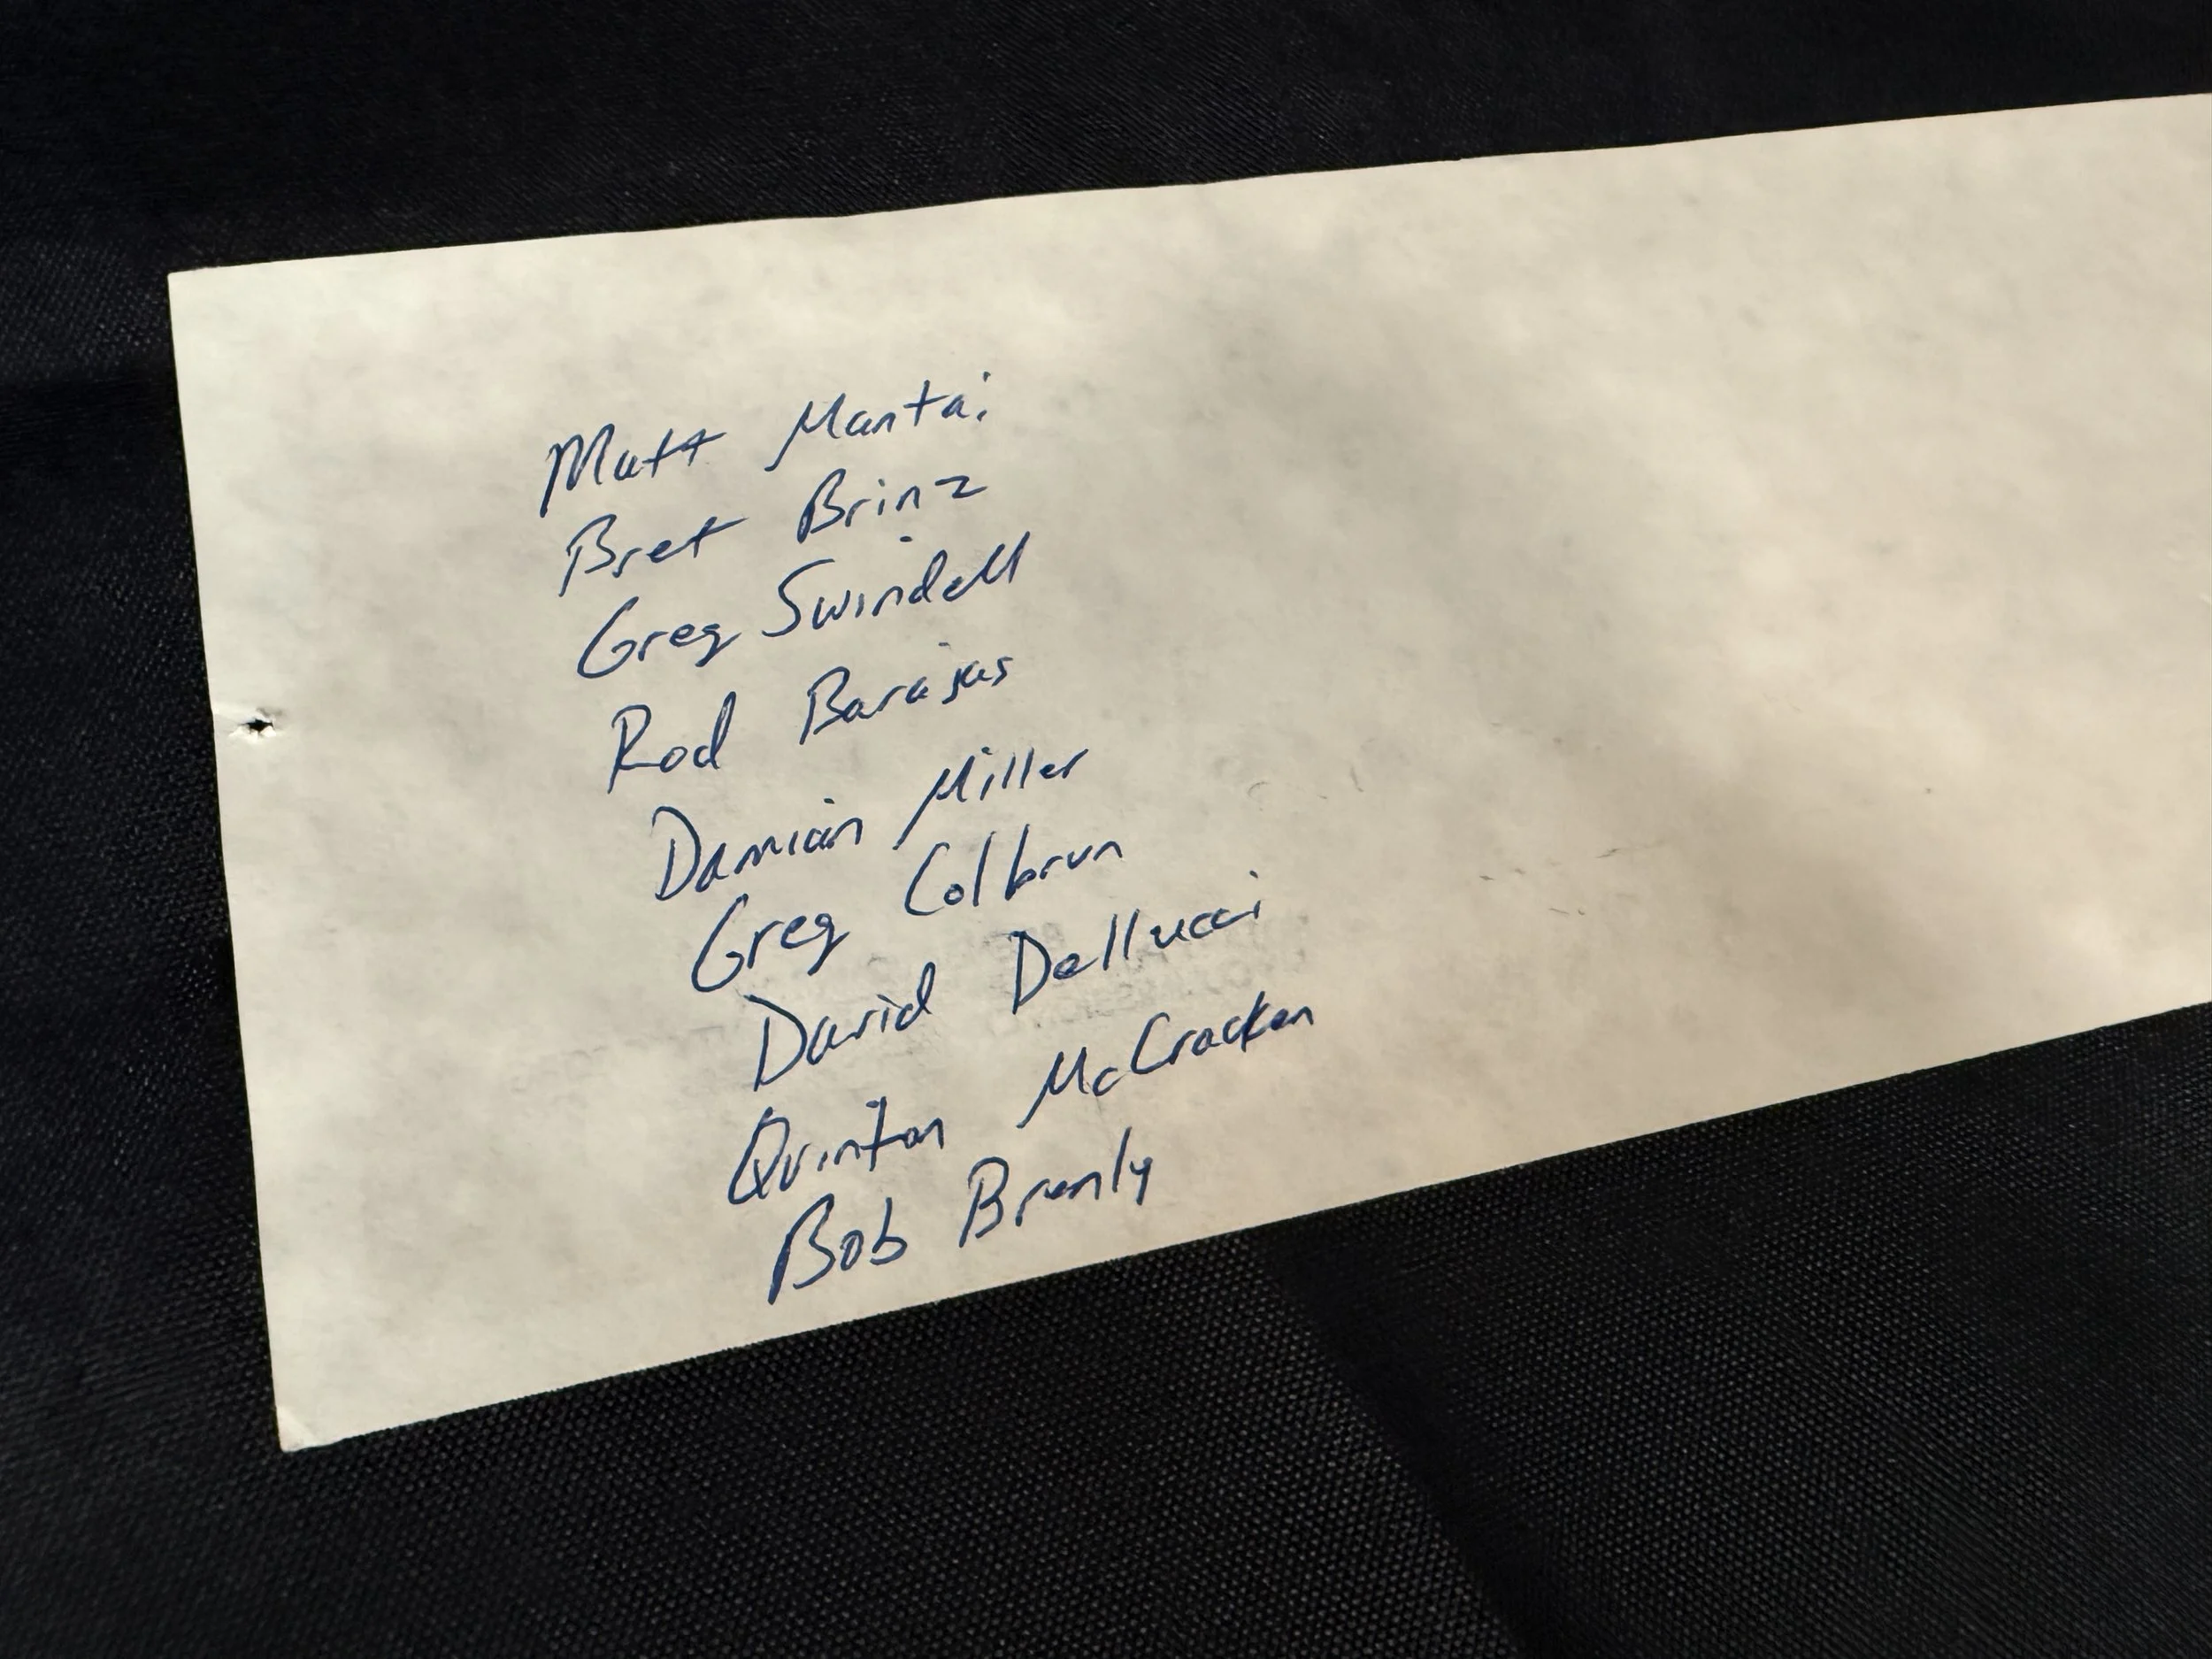 Matt Mantai
Bret Brinz
Greg Swindell
Rod Barajas
Damian Miller
Greg Colbrun
David Dellucci
Quinton McCracken
Bob Brenly